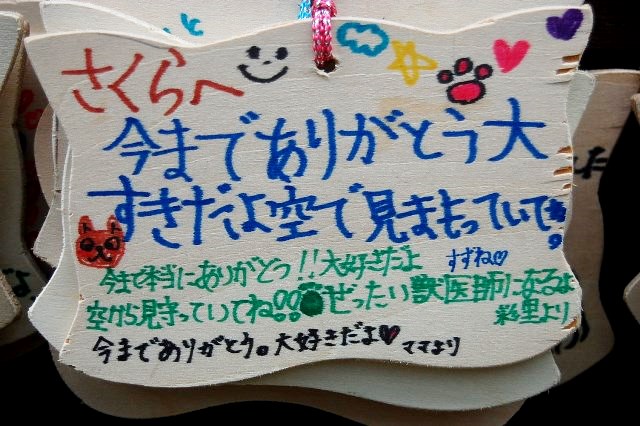 さくらへ
今までありがとう大
すきだよ空で見まもっていてね。
すずね♡
今まで本当にありがとう!!大好きだよ
空から見守っていてね!!ぜったい獣医師になるよ
彩里より
今までありがとう。大好きだよ♡ ママより